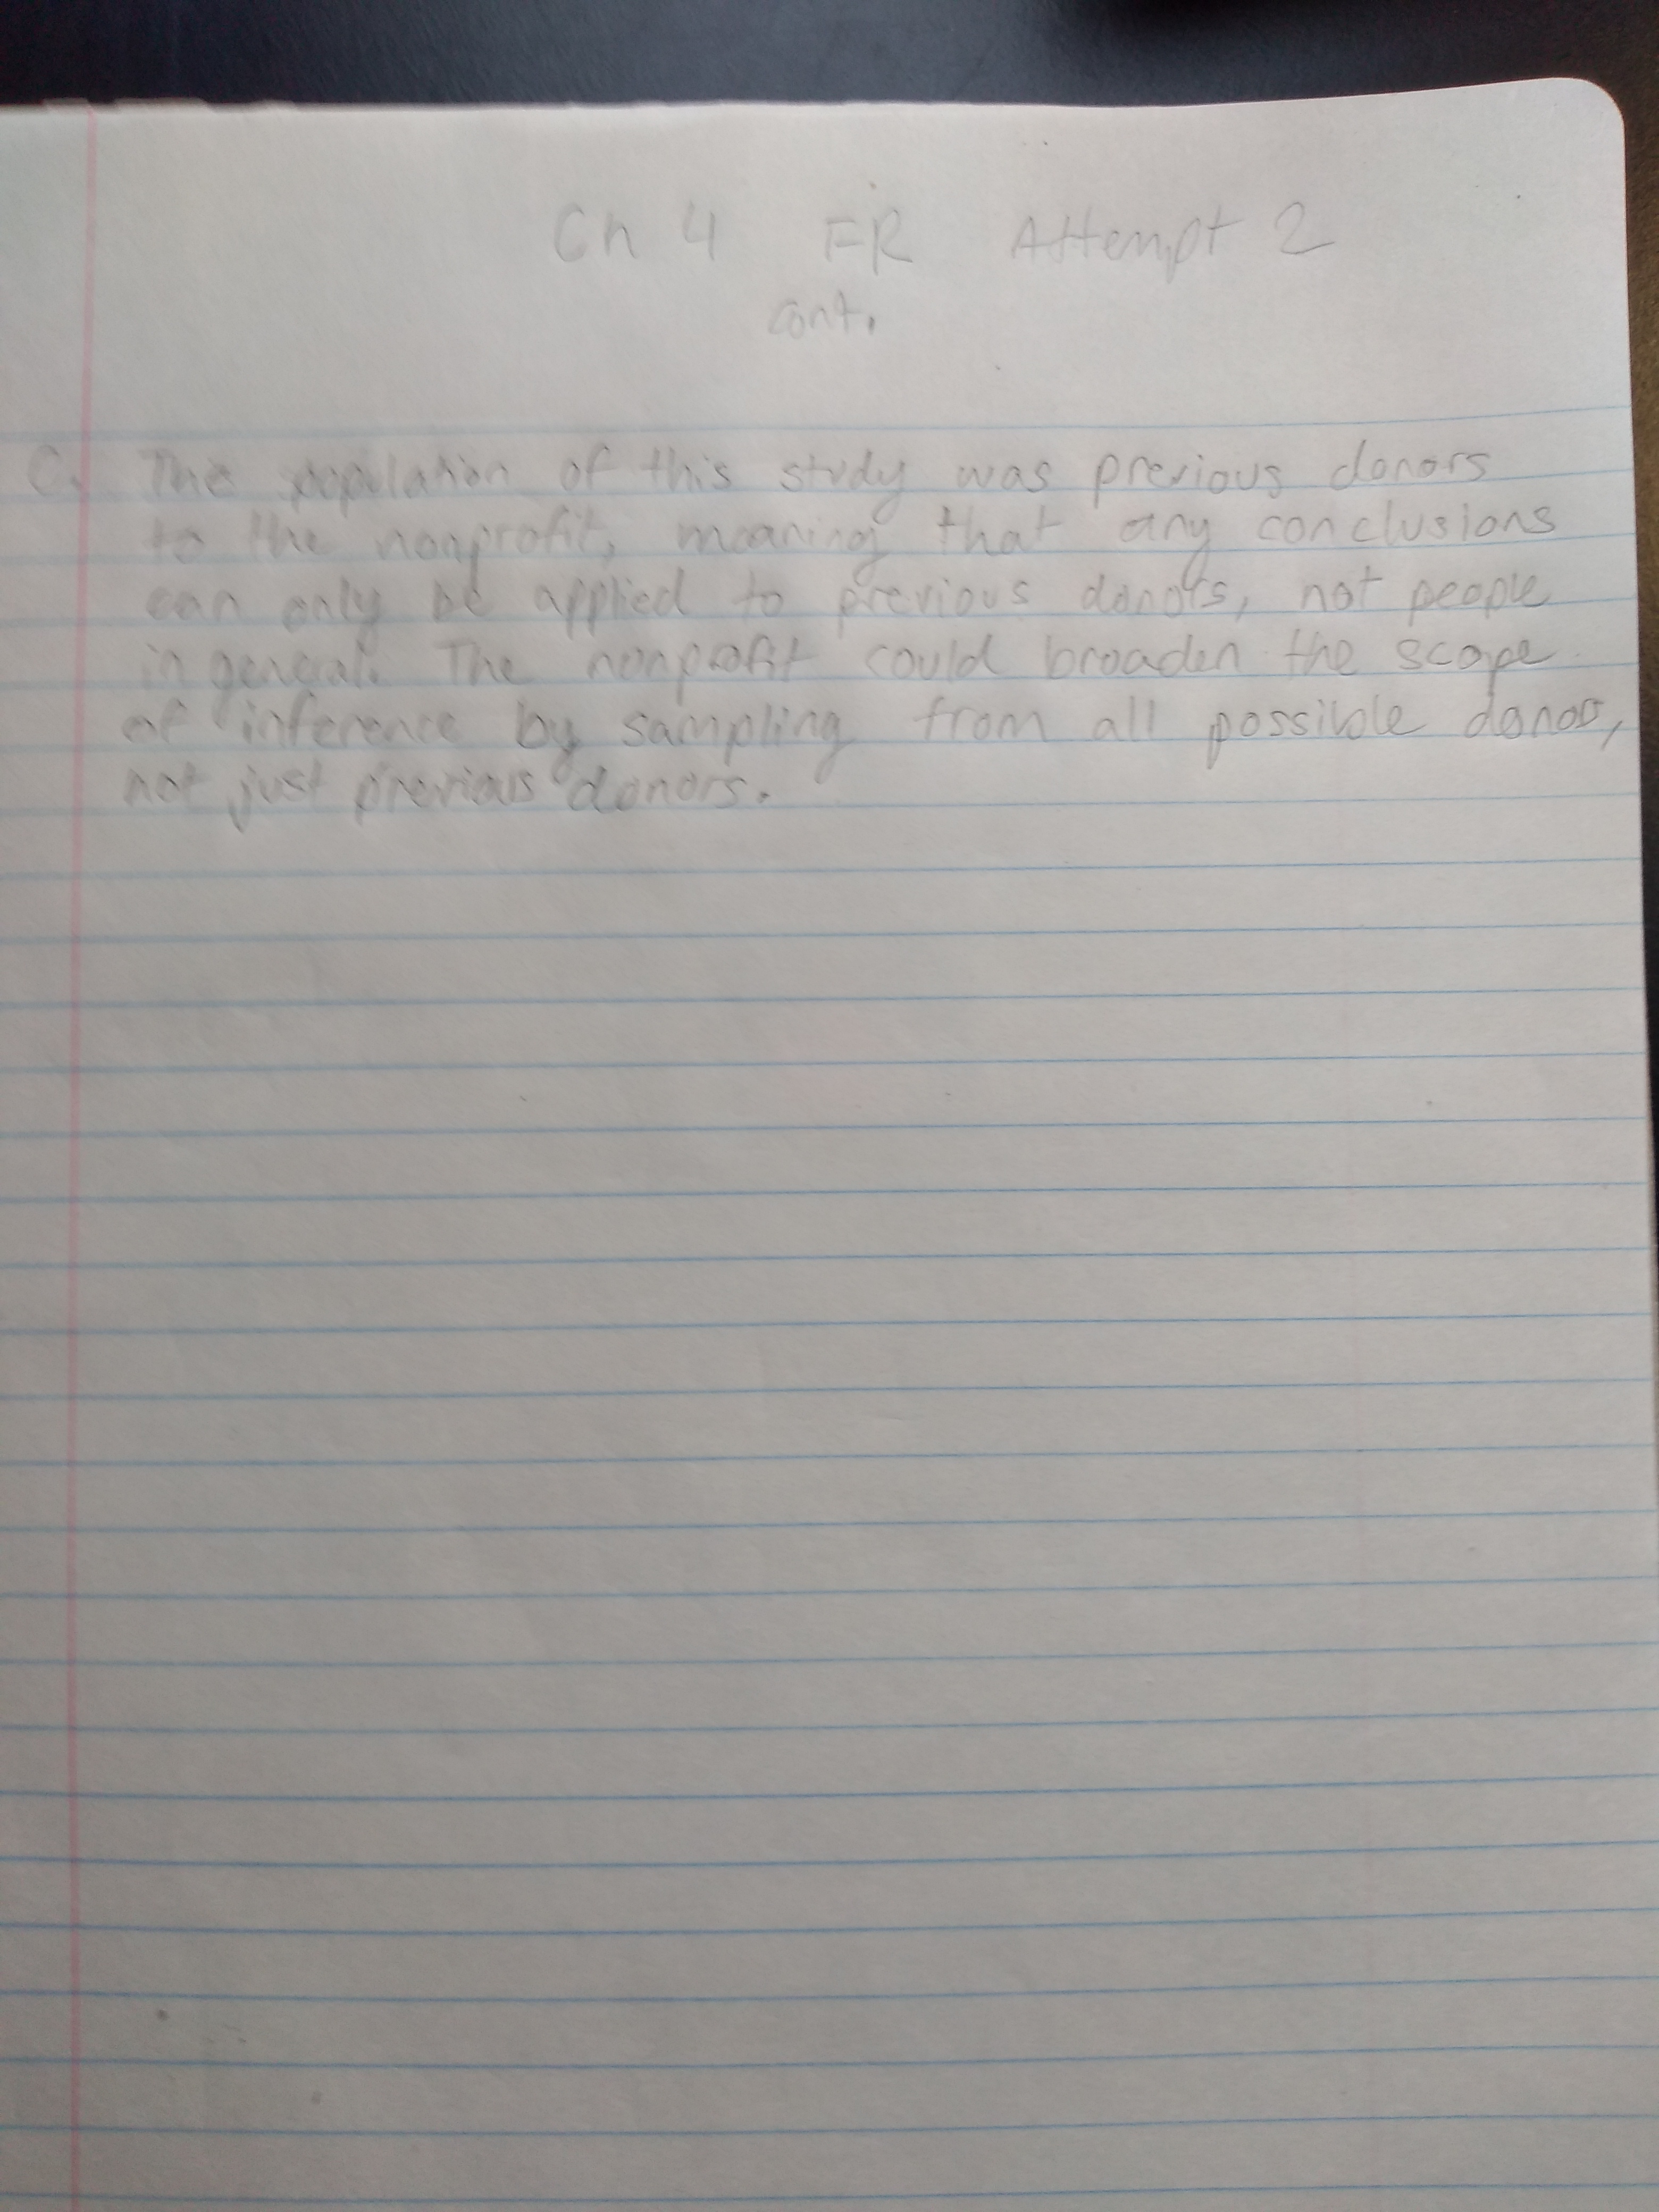 Ch 4 FR Attempt 2
cont.
C. The population of this study was previous donors
to the nonprofit, meaning that any conclusions
can only be applied to previous donors, not people
in general. The nonprofit could broaden the scope
of inference by sampling from all possible donors,
not just previous donors.